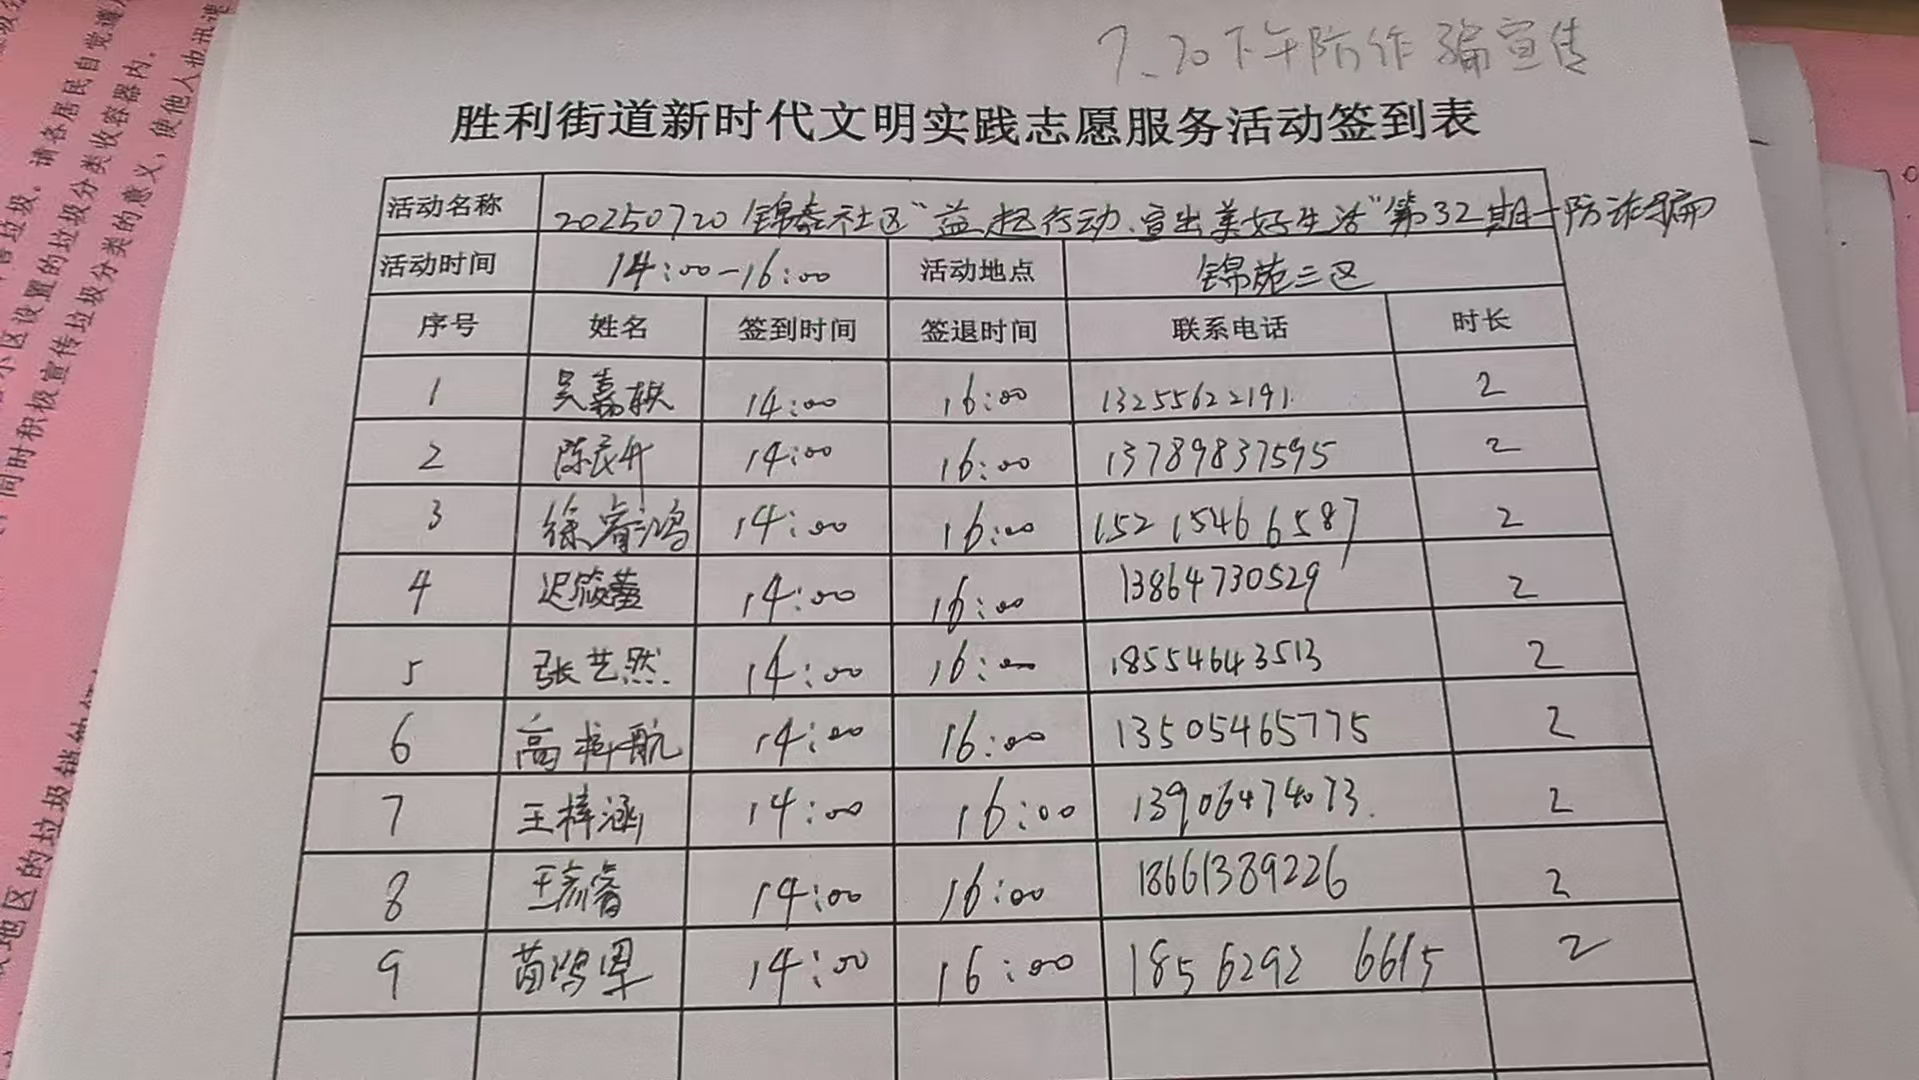 7.20下午防作骗宣传
胜利街道新时代文明实践志愿服务活动签到表
活动名称 20250720锦泰社区“益起行动、宣出美好生活”第32期-防诈骗
活动时间 14:00-16:00 活动地点 锦苑三区
序号 姓名 签到时间 签退时间 联系电话 时长
1 吴嘉轶 14:00 16:00 13255622191 2
2 陈民升 14:00 16:00 13789837595 2
3 徐睿鸿 14:00 16:00 15215466587 2
4 迟筱萱 14:00 16:00 13864730529 2
5 张艺然 14:00 16:00 18554643513 2
6 高梓航 14:00 16:00 13505465775 2
7 王梓涵 14:00 16:00 13906474073 2
8 王睿 14:00 16:00 18661389226 2
9 苗鸿恩 14:00 16:00 18562926615 2
请各居民自觉遵
小区设置的垃圾分类收容器内。
同时积极宣传垃圾分类的意义，使他人也
地区的垃圾